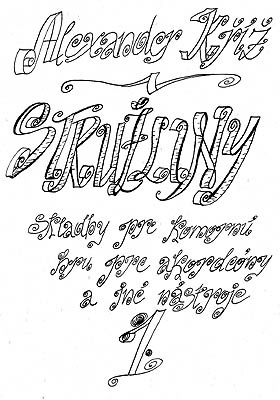 Alexandr Kříž
STRUŽLINY
Skladby pro komorní
hru pro akordeony
a iné nástroje
1.